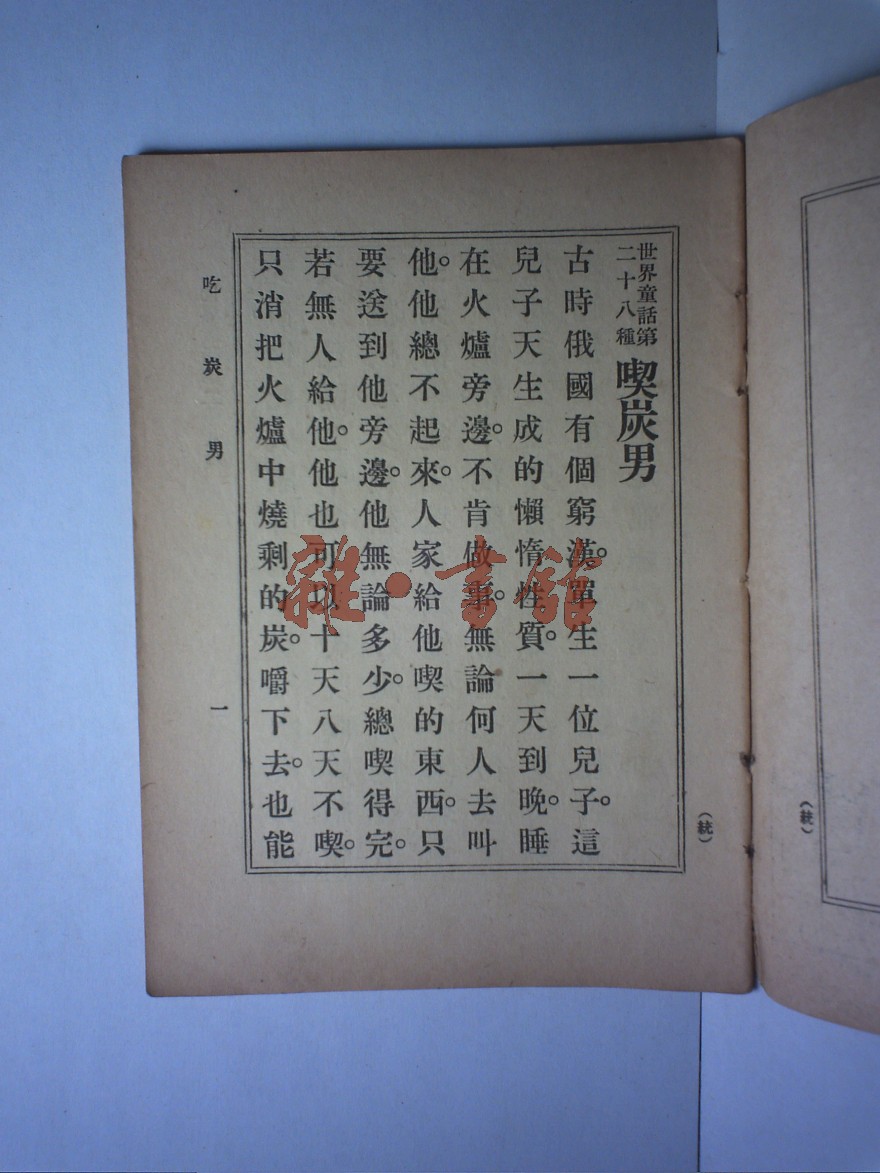 世界童話第
二十八種
喫炭男
古時俄國有個窮漢。單生一位兒子。這
兒子天生成的懶惰性質。一天到晚。睡
在火爐旁邊。不肯做事。無論何人去叫
他。他總不起來。人家給他喫的東西。只
要送到他旁邊。他無論多少。總喫得完。
若無人給他。他也可以十天八天不喫。
只消把火爐中燒剩的炭。嚼下去。也能
吃炭男
一
(統)
(統)
雜·書館